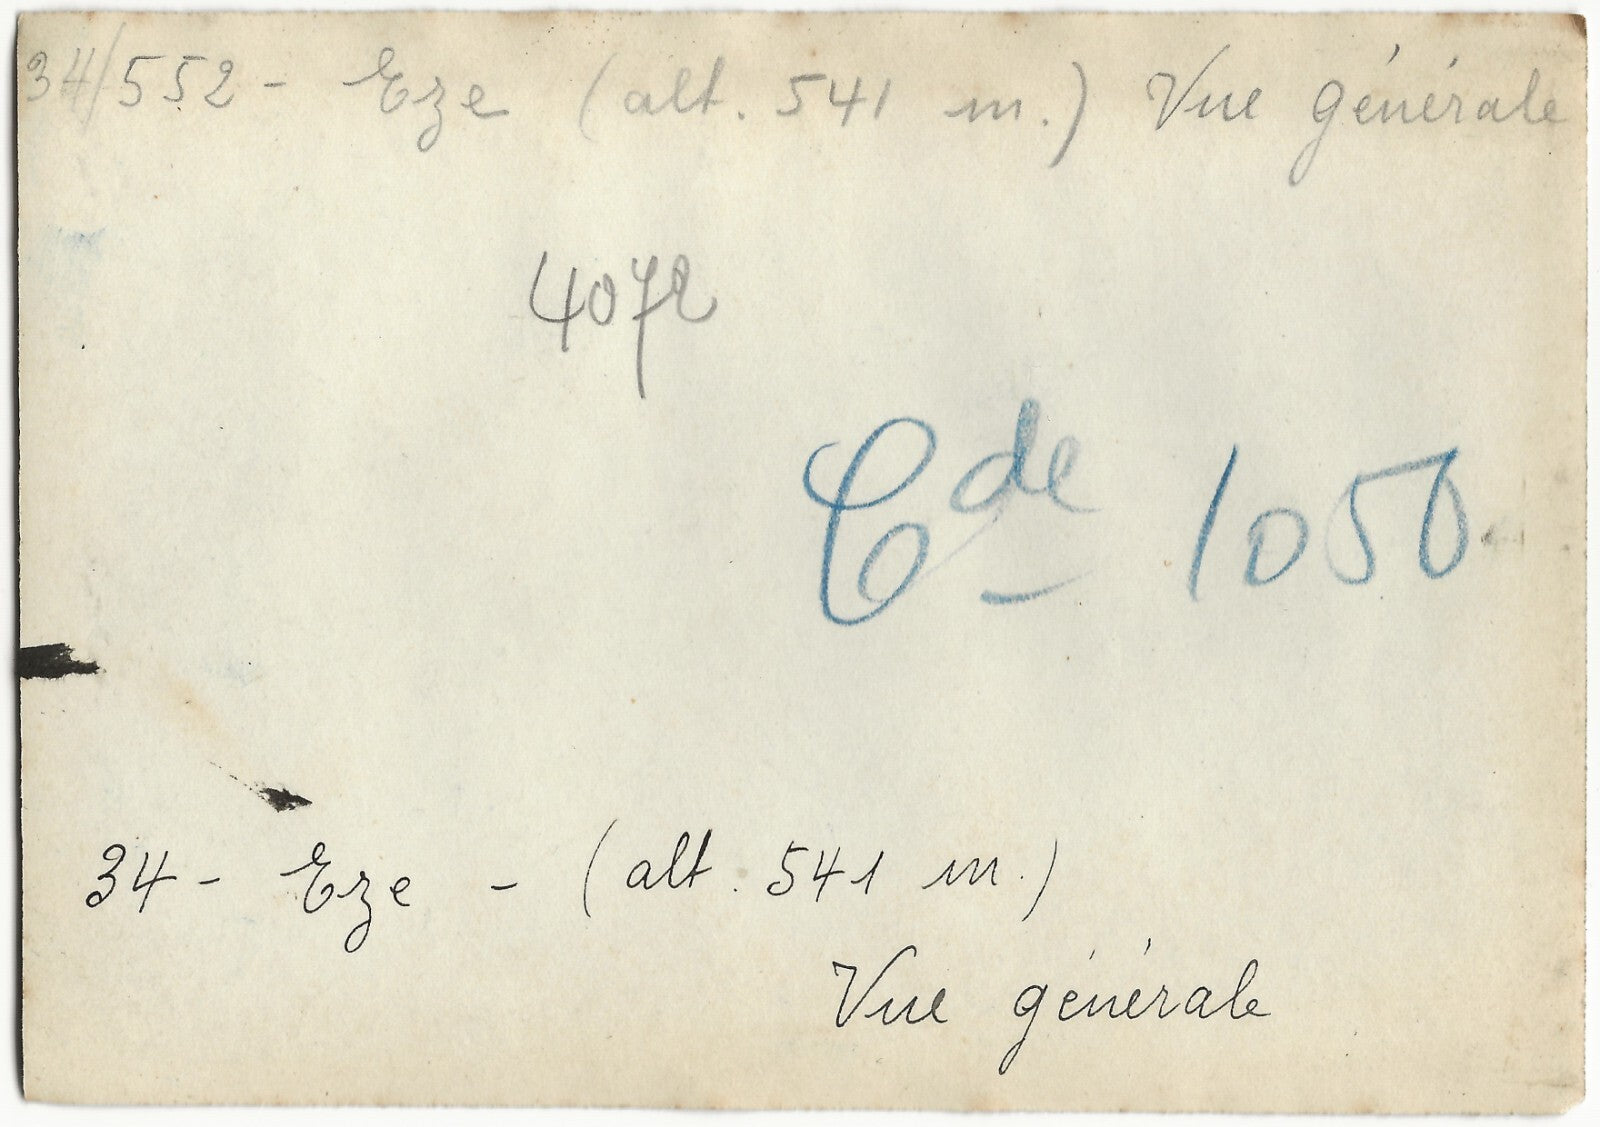 34/552 - Eze (alt. 541 m.) Vue générale
4072
Cde 1050
34 - Eze - (alt. 541 m.)
Vue générale